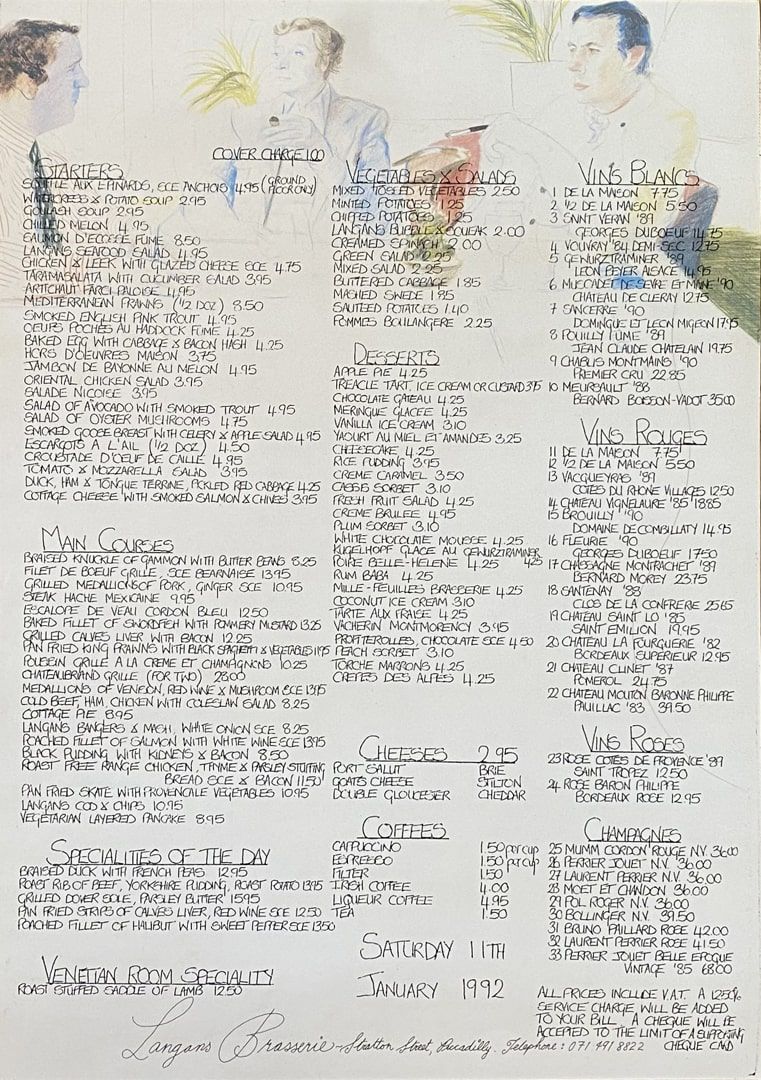 COVER CHARGE 1.00
STARTERS
SOUFFLE AUX EPINARDS, SCE ANCHOIS 4.95 (GROUND FLOOR ONLY)
WATERCRESS & POTATO SOUP 2.95
GOULASH SOUP 2.95
CHILLED MELON 4.95
SAUMON D'ECOSSE FUME 8.50
LANGANS SEAFOOD SALAD 4.95
CHICKEN & LEEK WITH GLAZED CHEESE SCE 4.75
TARAMASALATA WITH CUCUMBER SALAD 3.95
ARTICHAUT FARCI PALOISE 4.95
MEDITERRANEAN PRAWNS (1/2 DOZ) 8.50
SMOKED ENGLISH PINK TROUT 4.95
OEUFS POCHES AU HADDOCK FUME 4.25
BAKED EGG WITH CABBAGE & BACON HASH 4.25
HORS D'OEUVRES MAISON 3.75
JAMBON DE BAYONNE AU MELON 4.95
ORIENTAL CHICKEN SALAD 3.95
SALADE NICOISE 3.95
SALAD OF AVOCADO WITH SMOKED TROUT 4.95
SALAD OF OYSTER MUSHROOMS 4.75
SMOKED GOOSE BREAST WITH CELERY & APPLE SALAD 4.95
ESCARGOTS A L'AIL (1/2 DOZ) 4.50
CROUSTADE D'OEUF DE CAILLE 4.95
TOMATO & MOZZARELLA SALAD 3.95
DUCK, HAM & TONGUE TERRINE, PICKLED RED CABBAGE 4.25
COTTAGE CHEESE WITH SMOKED SALMON & CHIVES 3.95
MAIN COURSES
BRAISED KNUCKLE OF GAMMON WITH BUTTER BEANS 8.25
FILET DE BOEUF GRILLE, SCE BEARNAISE 13.95
GRILLED MEDALLIONS OF PORK, GINGER SCE 10.95
STEAK HACHE MEXICAINE 9.95
ESCALOPE DE VEAU CORDON BLEU 12.50
BAKED FILLET OF SWORDFISH WITH POMMERY MUSTARD 13.25
GRILLED CALVES LIVER WITH BACON 12.25
PAN FRIED KING PRAWNS WITH BLACK SPAGHETTI & VEGETABLES 11.95
POUSSIN GRILLE A LA CREME ET CHAMPIGNONS 10.25
CHATEAUBRIAND GRILLE (FOR TWO) 28.00
MEDALLIONS OF VENISON, RED WINE & MUSHROOM SCE 13.95
COLD BEEF, HAM, CHICKEN WITH COLESLAW SALAD 8.25
COTTAGE PIE 8.95
LANGANS BANGERS & MASH, WHITE ONION SCE 8.25
POACHED FILLET OF SALMON WITH WHITE WINE SCE 13.95
BLACK PUDDING WITH KIDNEYS & BACON 8.50
ROAST FREE RANGE CHICKEN, THYME & PARSLEY STUFFING
BREAD SCE & BACON 11.50
PAN FRIED SKATE WITH PROVENCALE VEGETABLES 10.95
LANGANS COD & CHIPS 10.95
VEGETARIAN LAYERED PANCAKE 8.95
SPECIALITIES OF THE DAY
BRAISED DUCK WITH FRENCH PEAS 12.95
ROAST RIB OF BEEF, YORKSHIRE PUDDING, ROAST POTATO 13.95
GRILLED DOVER SOLE, PARSLEY BUTTER 15.95
PAN FRIED STRIPS OF CALVES LIVER, RED WINE SCE 12.50
POACHED FILLET OF HALIBUT WITH SWEET PEPPER SCE 13.50
VENETIAN ROOM SPECIALITY
ROAST STUFFED SADDLE OF LAMB 12.50
VEGETABLES & SALADS
MIXED TOSSED VEGETABLES 2.50
MINTED POTATOES 1.25
CHIPPED POTATOES 1.25
LANGANS BUBBLE & SQUEAK 2.00
CREAMED SPINACH 2.00
GREEN SALAD 2.25
MIXED SALAD 2.25
BUTTERED CABBAGE 1.85
MASHED SWEDE 1.85
SAUTEED POTATOES 1.40
POMMES BOULANGERE 2.25
DESSERTS
APPLE PIE 4.25
TREACLE TART, ICE CREAM OR CUSTARD 3.95
CHOCOLATE GATEAU 4.25
MERINGUE GLACEE 4.25
VANILLA ICE CREAM 3.10
YAOURT AU MIEL ET AMANDES 3.25
CHEESECAKE 4.25
RICE PUDDING 3.95
CREME CARAMEL 3.50
CASSIS SORBET 3.10
FRESH FRUIT SALAD 4.25
CREME BRULEE 4.95
PLUM SORBET 3.10
WHITE CHOCOLATE MOUSSE 4.25
KUGELHOPF GLACE AU GEWURZTRAMINER 4.25
POIRE BELLE-HELENE 4.25
RUM BABA 4.25
MILLE-FEUILLES BRASSERIE 4.25
COCONUT ICE CREAM 3.10
TARTE AUX FRAISE 4.25
VACHERIN MONTMORENCY 3.95
PROFITEROLLES, CHOCOLATE SCE 4.50
PEACH SORBET 3.10
TORCHE MARRONS 4.25
CREPES DES ALPES 4.25
CHEESES 2.95
PORT SALUT BRIE
GOATS CHEESE STILTON
DOUBLE GLOUCESTER CHEDDAR
COFFEES
CAPPUCCINO 1.50 per cup
ESPRESSO 1.50 per cup
FILTER 1.50
IRISH COFFEE 4.00
LIQUEUR COFFEE 4.95
TEA 1.50
SATURDAY 11TH
JANUARY 1992
VINS BLANCS
1 DE LA MAISON 7.75
2 1/2 DE LA MAISON 5.50
3 SAINT VERAN '89
GEORGES DUBOEUF 14.75
4 VOUVRAY '84 DEMI-SEC 12.75
5 GEWURZTRAMINER '89
LEON BEYER ALSACE 14.95
6 MUSCADET DE SEVRE ET MAINE '90
CHATEAU DE CLERAY 12.75
7 SANCERRE '90
DOMINGUE ET LEON MIGEON 17.95
8 POUILLY FUME '89
JEAN CLAUDE CHATELAIN 19.75
9 CHABLIS MONTMAINS '90
PREMIER CRU 22.85
10 MEURSAULT '88
BERNARD BOISSON-VADOT 35.00
VINS ROUGES
11 DE LA MAISON 7.75
12 1/2 DE LA MAISON 5.50
13 VACQUEYRAS '89
COTES DU RHONE VILLAGES 12.50
14 CHATEAU VIGNELAURE '85 18.85
15 BROUILLY '90
DOMAINE DE COMBILLATY 14.95
16 FLEURIE '90
GEORGES DUBOEUF 17.50
17 CHASSAGNE MONTRACHET '89
BERNARD MOREY 23.75
18 SANTENAY '88
CLOS DE LA CONFRERIE 25.65
19 CHATEAU SAINT LO '85
SAINT EMILION 19.95
20 CHATEAU LA FOURGUERIE '82
BORDEAUX SUPERIEUR 12.95
21 CHATEAU CLINET '87
POMEROL 24.75
22 CHATEAU MOUTON BARONNE PHILIPPE
PAUILLAC '83 39.50
VINS ROSES
23 ROSE COTES DE PROVENCE '89
SAINT TROPEZ 12.50
24 ROSE BARON PHILIPPE
BORDEAUX ROSE 12.95
CHAMPAGNES
25 MUMM CORDON ROUGE N.V. 36.00
26 PERRIER JOUET N.V. 36.00
27 LAURENT PERRIER N.V. 36.00
28 MOET ET CHANDON 36.00
29 POL ROGER N.V. 36.00
30 BOLLINGER N.V. 39.50
31 BRUNO PAILLARD ROSE 42.00
32 LAURENT PERRIER ROSE 41.50
33 PERRIER JOUET BELLE EPOQUE
VINTAGE '85 68.00
ALL PRICES INCLUDE V.A.T. A 12.50%
SERVICE CHARGE, WILL BE ADDED
TO YOUR BILL. A CHEQUE WILL BE
ACCEPTED TO THE LIMIT OF A SUPPORTING
CHEQUE CARD
Langans Brasserie - Stratton Street, Piccadilly. Telephone: 071 491 8822